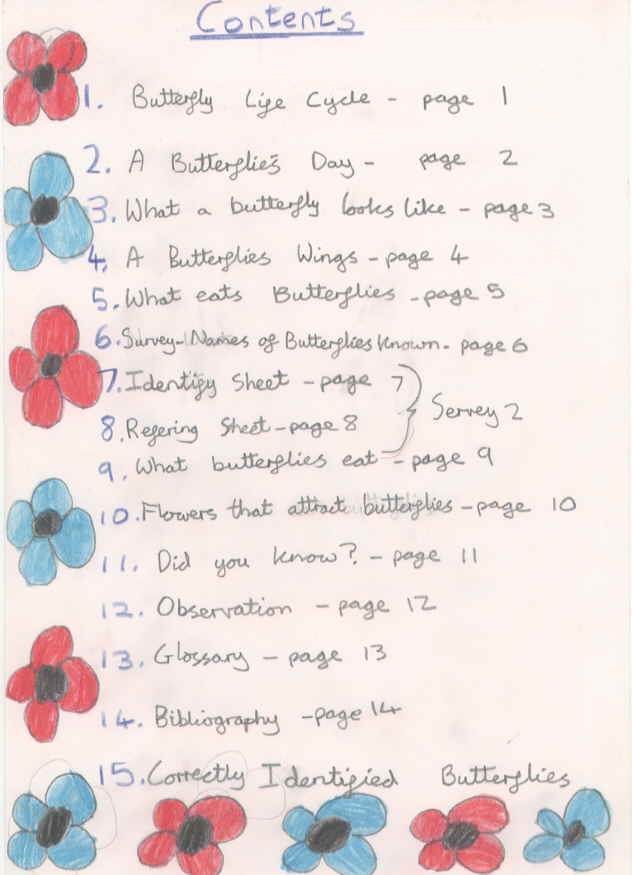 Contents
1. Butterfly Life Cycle - page 1
2. A Butterflie's Day - page 2
3. What a butterfly looks like - page 3
4. A Butterflies Wings - page 4
5. What eats Butterflies - page 5
6. Survey - Names of Butterflies Known - page 6
7. Identify Sheet - page 7
Servey 2
8. Refering Sheet - page 8
9. What butterflies eat - page 9
10. Flowers that attract butterflies - page 10
11. Did you know? - page 11
12. Observation - page 12
13. Glossary - page 13
14. Bibliography - page 14
15. Correctly Identified Butterflies